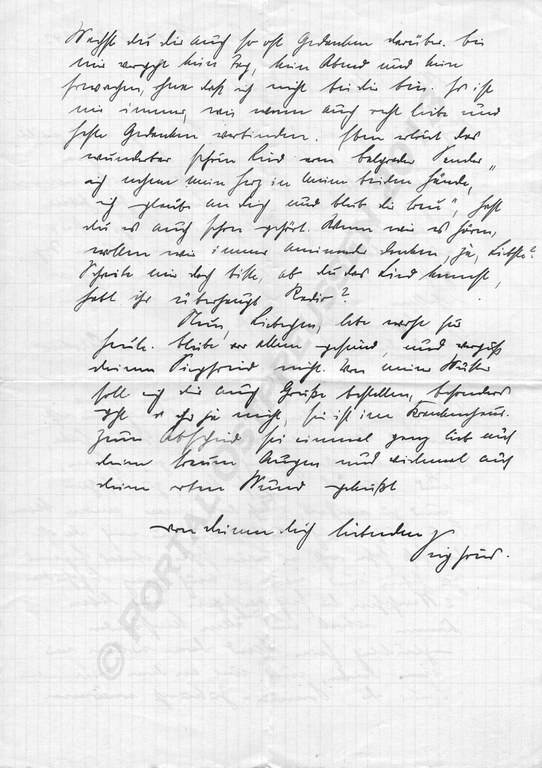 Machst du dir auch so oft Gedanken darüber. Bei
mir vergeht kein Tag, kein Abend und kein
Erwachen, ohne daß ich nicht bei dir bin. Es ist
mir immer, wie wenn auch recht liebe und
Gedanken verbinden. Eben ertönt das
wunderbar schöne Lied vom Belgrader Sender „
ich nehme mein Herz in meine beiden Hände,
ich glaube an dich und bleib dir treu", hast
du es auch schon gehört. Wenn wir es hören,
wollen wir immer aneinander denken, ja, Liebste?
Schreibe mir doch bitte, ob du das Lied kennst,
habt ihr überhaupt Radio?
Nun, Liebchen, lebe wohl für
heute. Bleibe vor allem gesund, und vergiß
deinen Siegfried nicht. Von meiner Mutter
soll ich dir auch Grüße bestellen, besonders
geht es ihr ja nicht, sie ist im Krankenhaus.
Zum Abschied sei einmal ganz lieb auf
deine braunen Augen und vielmal auf
deinen roten Mund geküßt
von deinem dich liebenden
Siegfried.
© PORTAL OSTPREUSSEN